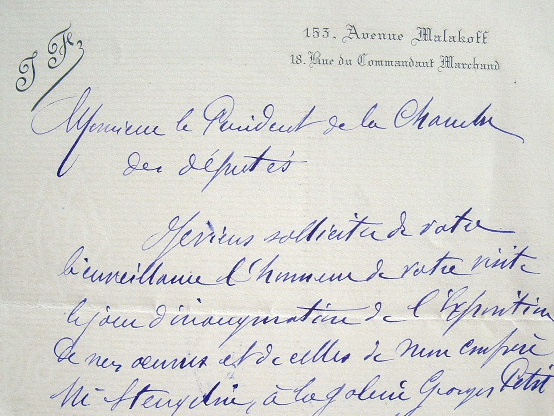 153. Avenue Malakoff
18. Rue du Commandant Marchand
Monsieur le Président de la Chambre
des députés
Je viens solliciter de votre
bienveillance l'honneur de votre visite
le jour d'inauguration de l'Exposition
de mes oeuvres et de celles de mon confrère
Mr Stengelin, à la galerie Georges Petit